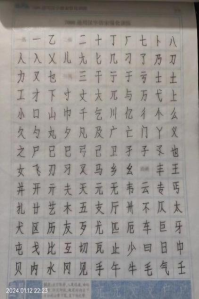 一 乙 二 十 丁 厂 七 卜 八
人 入 乂 儿 九 匕 几 刁 了 乃 刀
力 又 乜 三 干 亍 于 亏 士 土
工 才 下 寸 丈 大 兀 与 万 上
小 口 山 巾 千 乞 川 亿 个 么
久 勺 丸 夕 凡 及 广 亡 门 丫 义
之 尸 已 巳 弓 己 卫 孑 子 孓 也
女 飞 刃 习 叉 马 乡 幺 丰 王
井 开 亓 夫 天 元 无 韦 云 专 丐
廿 艺 木 五 支 厅 卅 不 仄 太
犬 区 历 友 歹 尤 匹 厄 车 巨 牙
屯 戈 比 互 切 瓦 止 少 曰 日 中
贝 内 水 冈 见 手 午 牛 毛 气 壬
2024.01.12 22:23